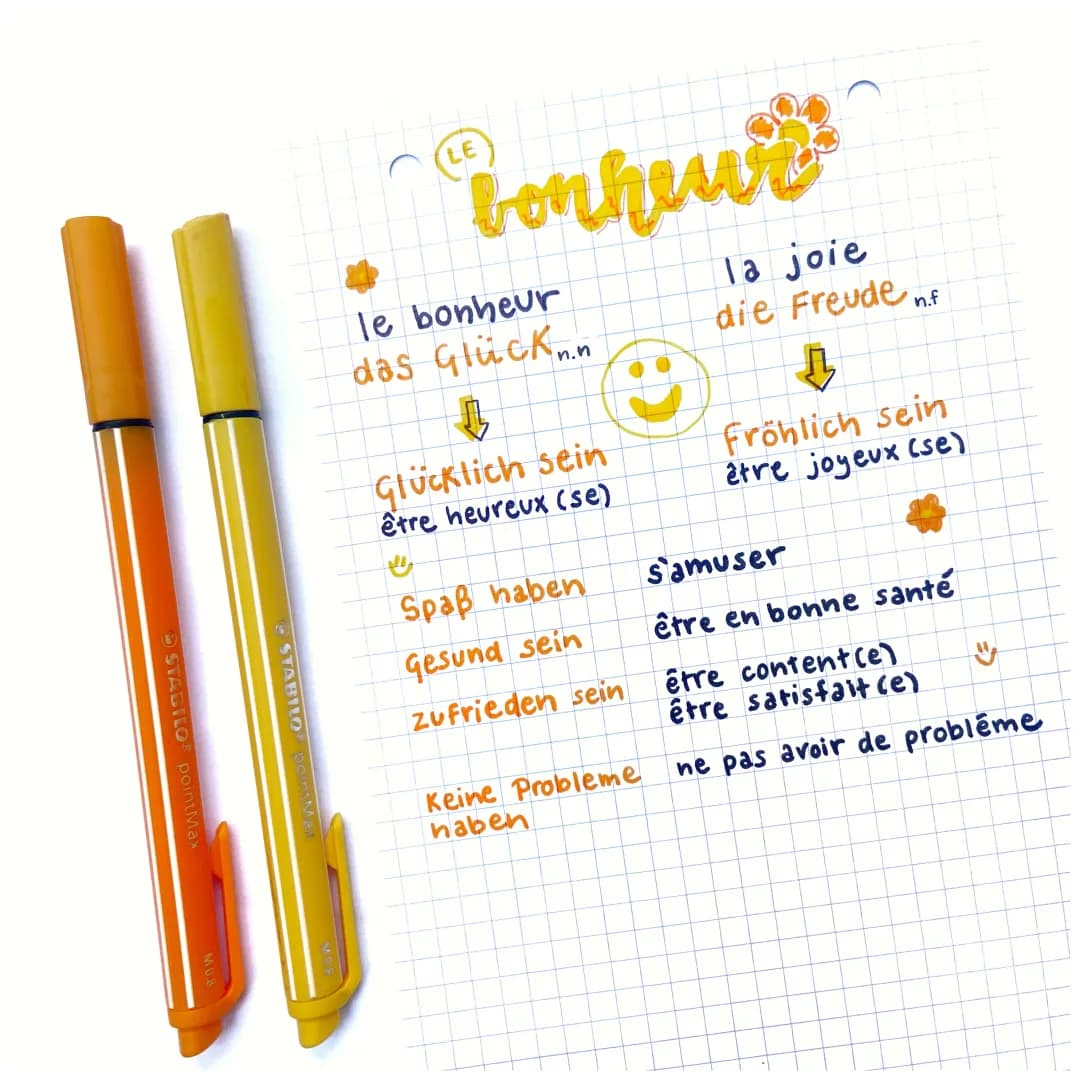 LE
bonheur
le bonheur
das Glück n.n
la joie
die Freude n.f
Glücklich sein
être heureux (se)
Fröhlich sein
être joyeux (se)
Spaß haben
s'amuser
gesund sein
être en bonne santé
zufrieden sein
être content(e)
être satisfait(e)
Keine Probleme
haben
ne pas avoir de problême
STABILO® pointMax
M 0.8
STABILO® pointMax
M 0.8